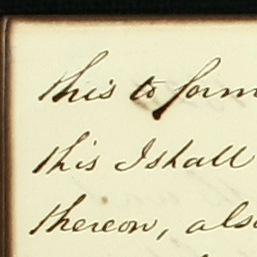 this to form
this I shall
thereon, als